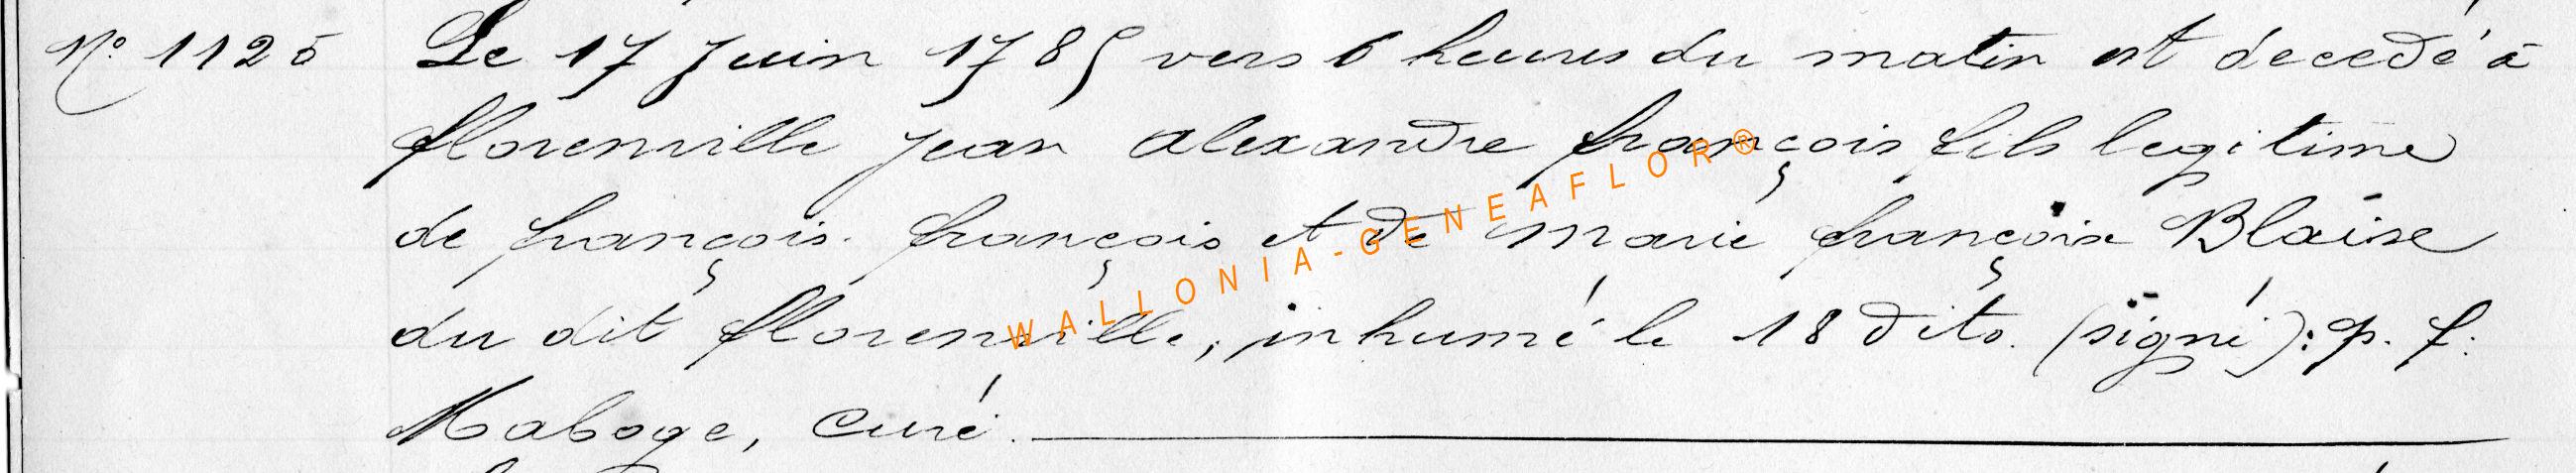 N° 1125 Le 17 Juin 1785 vers 6 heures du matin est decedé à
florenville jean alexandre françois fils legitime
de françois françois et de marie françoise Blaise
du dit florenville, inhumé le 18 dito. (signé): p. f.
Maboge, curé.
WALLONIA-GENEAFLOR®